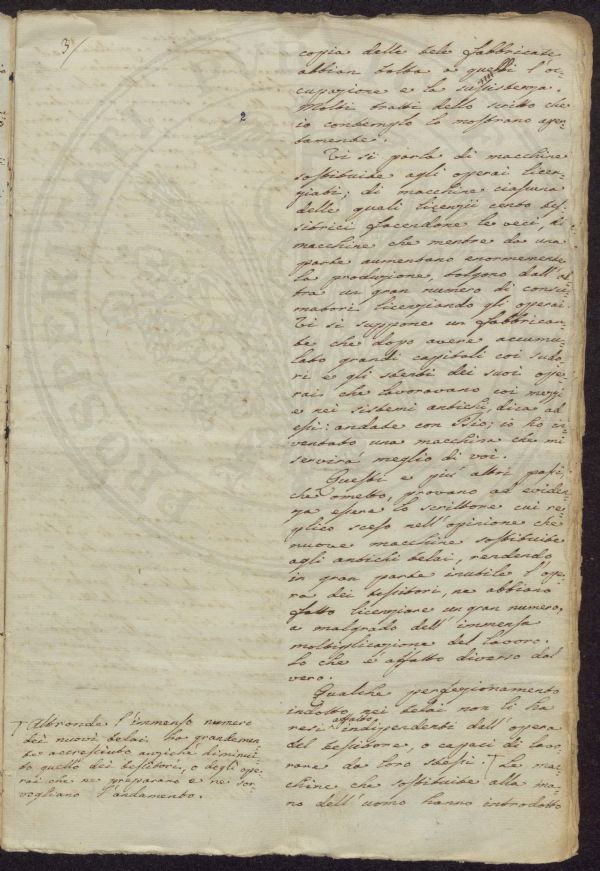 3/
2
copia delle tele fabbricate
abbian tolta a questi l'oc-
cupazione e la sussistenza.
Molti tratti dello scritto che
io contemplo lo mostrano aper-
tamente.
Vi si parla di macchine
sostituite agli operai licen-
ziati; di macchine ciascuna
delle quali licenzii cento tes-
sitrici facendone le veci, di
macchine che mentre da una
parte aumentano enormemente
la produzione, tolgono dall'al-
tra un gran numero di consu-
matori licenziando gli operai.
Vi si suppone un fabbrican-
te che dopo avere accumu-
lato grandi capitali coi sudo-
ri e gli stenti dei suoi ope-
rai che lavoravano coi mezzi
e nei sistemi antichi, dica ad
essi: andate con Dio; io ho in-
ventato una macchina che mi
servirà meglio di voi.
Questi e più altri passi,
che ometto, provano ad eviden-
za essere lo scrittore cui re-
plico sceso nell'opinione che
nuove macchine sostituite
agli antichi telai, rendendo
in gran parte inutile l'ope-
ra dei tessitori, ne abbiano
fatto licenziare un gran numero,
a malgrado dell'immensa
moltiplicazione del lavoro.
Lo che è affatto diverso dal
vero.
Qualche perfezionamento
indotto nei telai non li ha
resi affatto indipendenti dall'opera
del tessitore, o capaci di lavo-
rare da loro stessi. † Le mac-
chine che sostituite alla ma-
no dell'uomo hanno introdotto
† Altronde l'immenso numero
dei nuovi telai, ha grandemen-
te accresciuto anziché diminui-
to quello dei tessitori, o degli ope-
rai che ne preparano e ne sor-
vegliano l'andamento.
PROSPERA